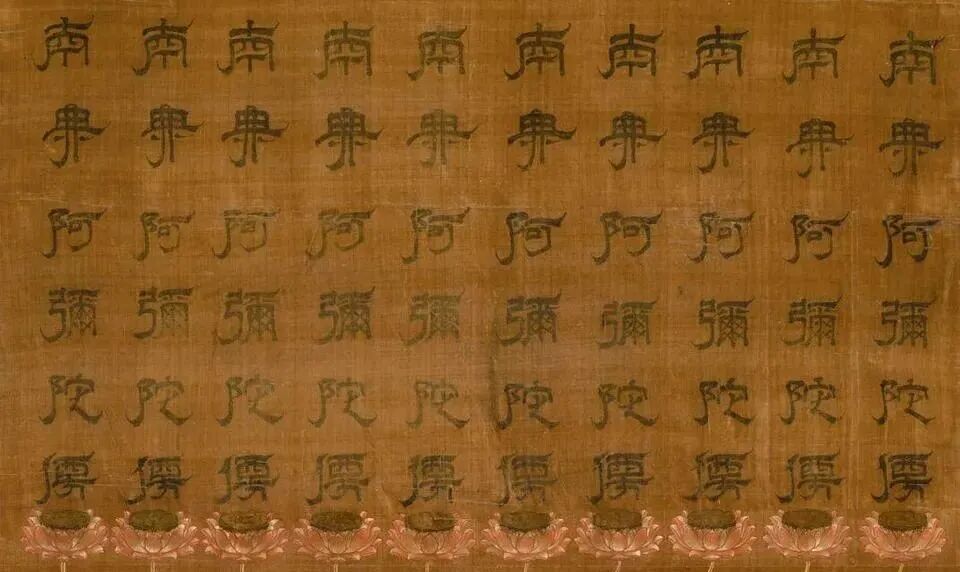 南無阿彌陀佛
南無阿彌陀佛
南無阿彌陀佛
南無阿彌陀佛
南無阿彌陀佛
南無阿彌陀佛
南無阿彌陀佛
南無阿彌陀佛
南無阿彌陀佛
南無阿彌陀佛